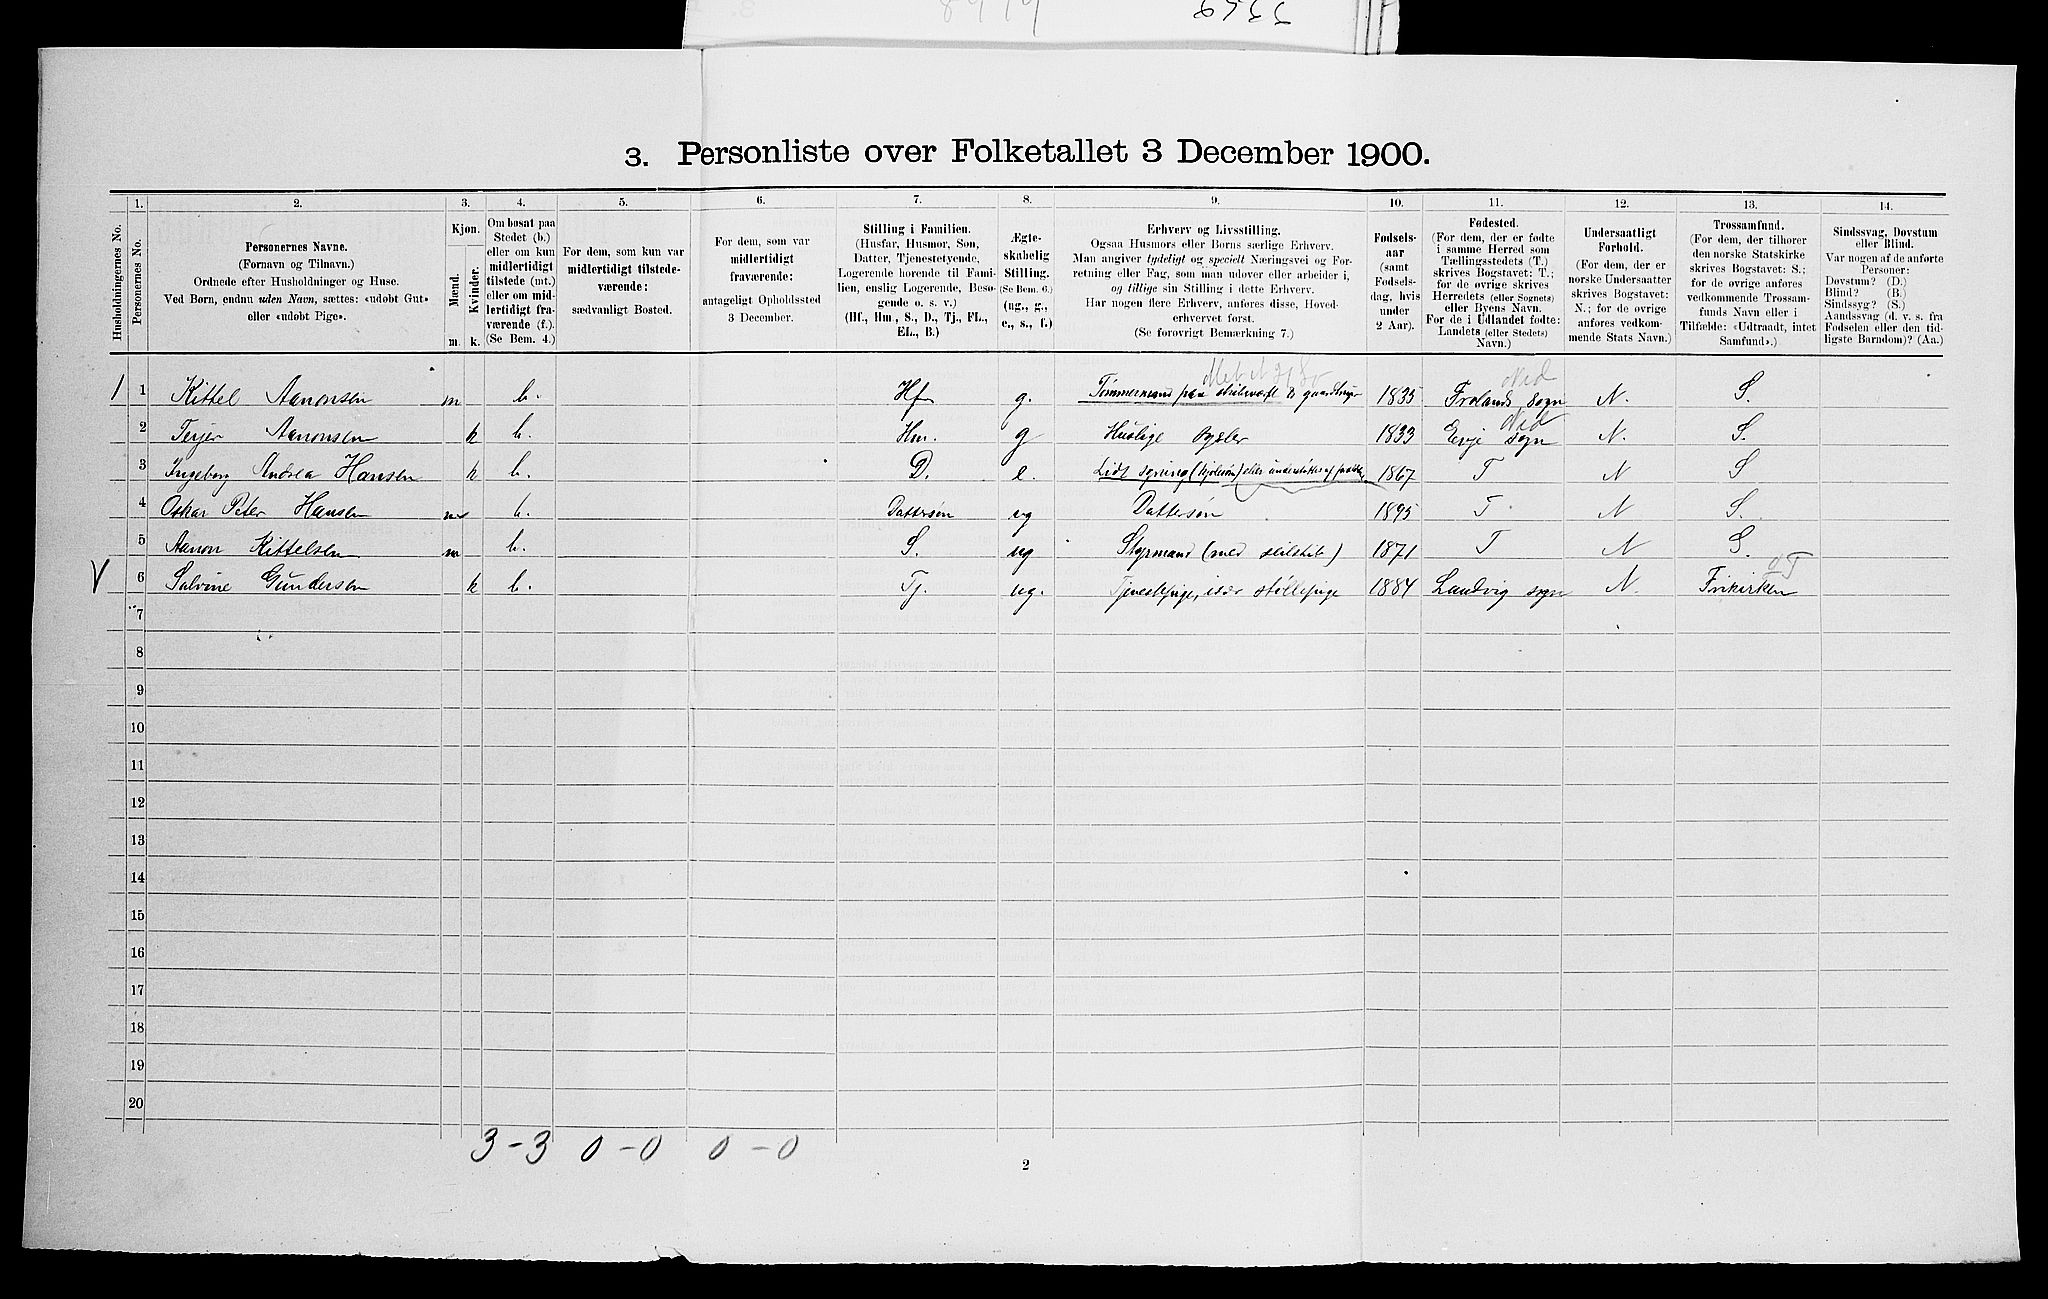 3. Personliste over Folketallet 3 December 1900.
1. 2. 3. 4. 5. 6. 7. 8. 9. 10. 11. 12. 13. 14.
Husholdningernes No.
Personernes No.
Personernes Navne.
(Fornavn og Tilnavn.)
Ordnede efter Husholdninger og Huse.
Ved Børn, endnu uden Navn, sættes: «udøbt Gut»
eller «udøbt Pige».
Kjøn.
Mænd.
Kvinder.
m. k.
Om bosat paa
Stedet (b.)
eller om kun
midlertidigt
tilstede (mt.)
eller om mid-
lertidigt fra-
værende (f.).
(Se Bem. 4.)
For dem, som kun var
midlertidigt tilstede-
værende:
sædvanligt Bosted.
For dem, som var
midlertidigt
fraværende:
antageligt Opholdssted
3 December.
Stilling i Familien.
(Husfar, Husmor, Søn,
Datter, Tjenestetyende,
Logerende hørende til Fami-
lien, enslig Logerende, Besø-
gende o. s. v.)
(Hf., Hm., S., D., Tj., FL.,
EL., B.)
Ægte-
skabelig
Stilling.
(Se Bem. 6.)
(ug., g.,
e., s., f.)
Erhverv og Livsstilling.
Ogsaa Husmors eller Børns særlige Erhverv.
Man angiver tydeligt og specielt Næringsvei og For-
retning eller Fag, som man udøver eller arbeider i,
og tillige sin Stilling i dette Erhverv.
Har nogen flere Erhverv, anføres disse, Hoved-
erhvervet først.
(Se forøvrigt Bemærkning 7.)
Fødsels-
aar
(samt
Fødsels-
dag, hvis
under
2 Aar).
Fødested.
(For dem, der er fødte
i samme Herred som
Tællingsstedets (T.)
skrives Bogstavet: T.;
for de øvrige skrives
Herredets (eller Sognets)
eller Byens Navn.
For de i Udlandet fødte:
Landets (eller Stedets)
Navn.)
Undersaatligt
Forhold.
(For dem, der er
norske Undersaatter
skrives Bogstavet:
N.; for de øvrige
anføres vedkom-
mende Stats Navn.)
Trossamfund.
(For dem, der tilhører
den norske Statskirke
skrives Bogstavet: S.;
for de øvrige anføres
vedkommende Trossam-
funds Navn eller i
Tilfælde: «Udtraadt, intet
Samfund».)
Sindssvag, Døvstum
eller Blind.
Var nogen af de anførte
Personer:
Døvstum? (D.)
Blind? (B.)
Sindssyg? (S.)
Aandssvag (d. v. s. fra
Fødselen eller den tid-
ligste Barndom)? (Aa.)
1 1 Kittel Aanonsen m b. Hf g. Tømmermand paa gaardbruger 1835 Frolands sogn N. S.
Ned
2 Terjer Aanonsen k b. Hm. g Huslige sysler 1833 Evje sogn N. S.
Ned
3 Ingeborg Andrea Hansen k b. D. e. Lidt syning (kjolesøm) eller understøttes af 1867 T N S
4 Oskar Peter Hansen m b. Dattersøn ug Dattersøn 1895 T N S.
5 Aanon Kittelsen m b. S. ug Styrmand (med seilskib) 1871 T N S.
V 6 Salvine Gundersen k b. Tj. ug. Tjenestepige, især stellepige 1884 Landvig sogn N. Frikirken
7
8
9
10
11
12
13
14
15
16
17
18
19
20
3-3 0-0 0-0
2